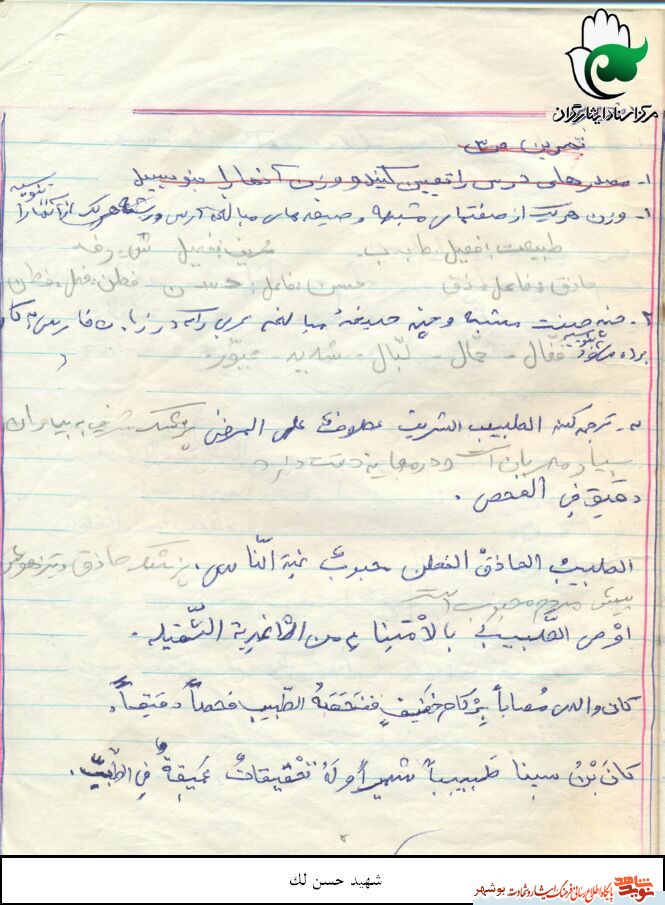 مرکز اسناد ایثارگران
تمرین ص ۳
۱- مصدرهای درس را تعیین کنید و وزن آنها را بنویسید
۱- وزن هر یک از صفتهای مشبهه و صیغه های مبالغه درس و ریشه هر یک از آنها را بنویسید
طبیب: فعیل: ط ب ب. شریف: فعیل ش ر ف
حاذق: فاعل: ذق حسن: فاعل: ح س ن فطن: فعل: فطن
۲- چند صفت مشبهه و چند صیغهٔ مبالغه عربی را که در زبان فارسی به کار
برده میشود بنویسید فعّال - حمّال - شدید
۳- ترجمه کنید الطبیب الشریف عطوف علی المرضی پزشک شریف به بیماران
بسیار مهربان است و در معاینه دقت دارد
دقیق فی الفحص.
الطبیب الحاذق الفطن محبوب الناس. پزشک حاذق و تیزهوش
پیش مردم محبوب است
اوْصی الطَّبیبُ بالاْمتِناعِ من الاَغذیة الثَّقیله.
کان والدی مُصاباً بِزُکام خفیفٍ ففَحَصَهُ الطّبیب فحصاً دقیقاً.
کانَ بْنُ سینا طَبیبیاً شهیراً و لَهُ تَحْقیقاتٌ عَمیقةٌ فِی الطِّبِّ.
شهید حسن لک
نوید شاهد
پایگاه اطلاع رسانی فرهنگ ایثار و شهادت بوشهر